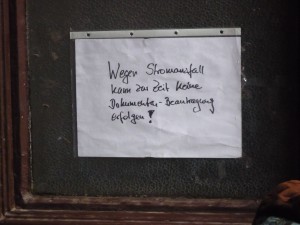 Wegen Stromausfall
kann zur Zeit keine
Dokumenten-Beantragung
erfolgen!